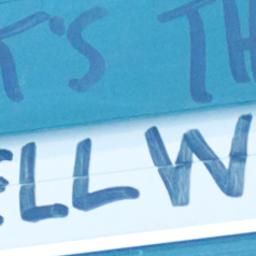 T'S TH
ELL W